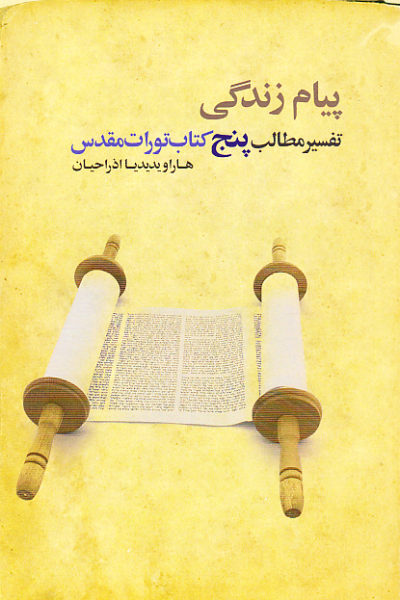 پیام زندگی
تفسیر مطالب پنج کتاب تورات مقدس
هاراو یدیدیا اذراحیان